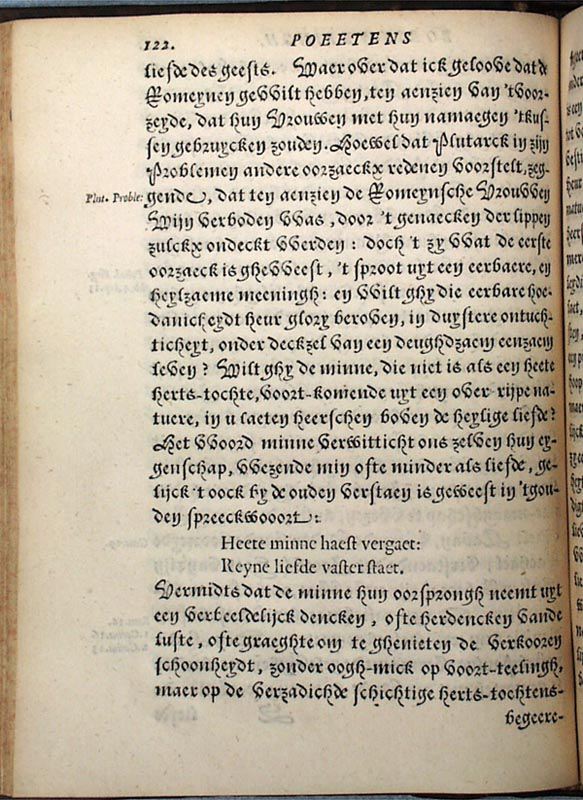 122. POEETENS
liefde des geests. Waer over dat ick geloove dat de
Romeynen gewilt hebben, ten aenzien van 't voor-
zeyde, dat hun Vrouwen met hun namaegen 't kus-
sen gebruycken zouden. Hoewel dat Plutarck in zijn
Problemen andere oorzaeckx redenen voorstelt, zeg-
Plut. Proble: gende, dat ten aenzien de Romeynsche Vrouwen
Wijn verboden was, door 't genaecken der lippen
zulckx ondeckt werden: doch 't zy wat de eerste
oorzaeck is gheweest, 't sproot uyt een eerbaere, en
heylzaeme meeningh: en wilt ghy die eerbare hoe-
danicheydt heur glory beroven, in duystere ontuch-
ticheyt, onder deckzel van een deughdzaem eenzaem
leven? Wilt ghy de minne, die niet is als een heete
herts-tochte, voort-komende uyt een over-rijpe na-
tuere, in u laeten heerschen boven de heylige liefde?
Het woord minne verwitticht ons zelven hun ey-
genschap, wezende min ofte minder als liefde, ge-
lijck 't oock by de ouden verstaen is geweest in 't gou-
den spreeckwooort:
Heete minne haest vergaet:
Reyne liefde vaster staet.
Vermidts dat de minne hun oorsprongh neemt uyt
een verbeeldelijck dencken, ofte herdencken vande
luste, ofte graeghte om te ghenieten de verkooren
schoonheydt, zonder oogh-mick op voort-teelingh,
maer op de verzadichde schichtige herts-tochtens-
begeere-